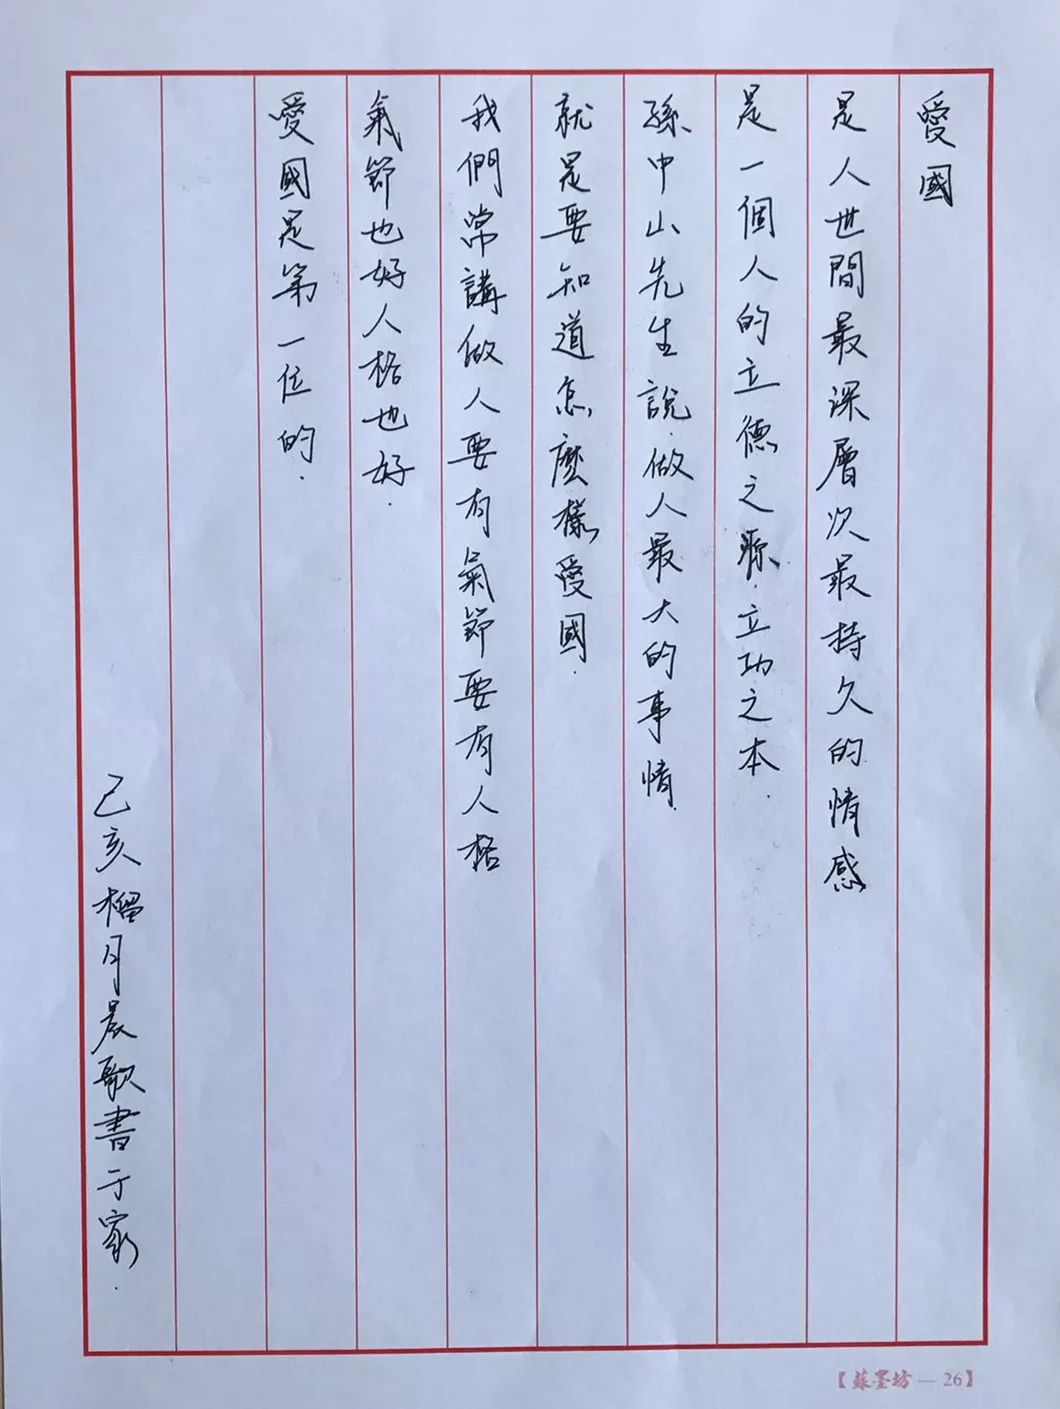 愛國
是人世間最深層次最持久的情感
是一個人的立德之源.立功之本.
孫中山先生說.做人最大的事情.
就是要知道怎麼樣愛國.
我們常講做人要有氣節要有人格
氣節也好人格也好.
愛國是第一位的.
己亥榴月晨歌書于家.
【蘇墨坊—26】